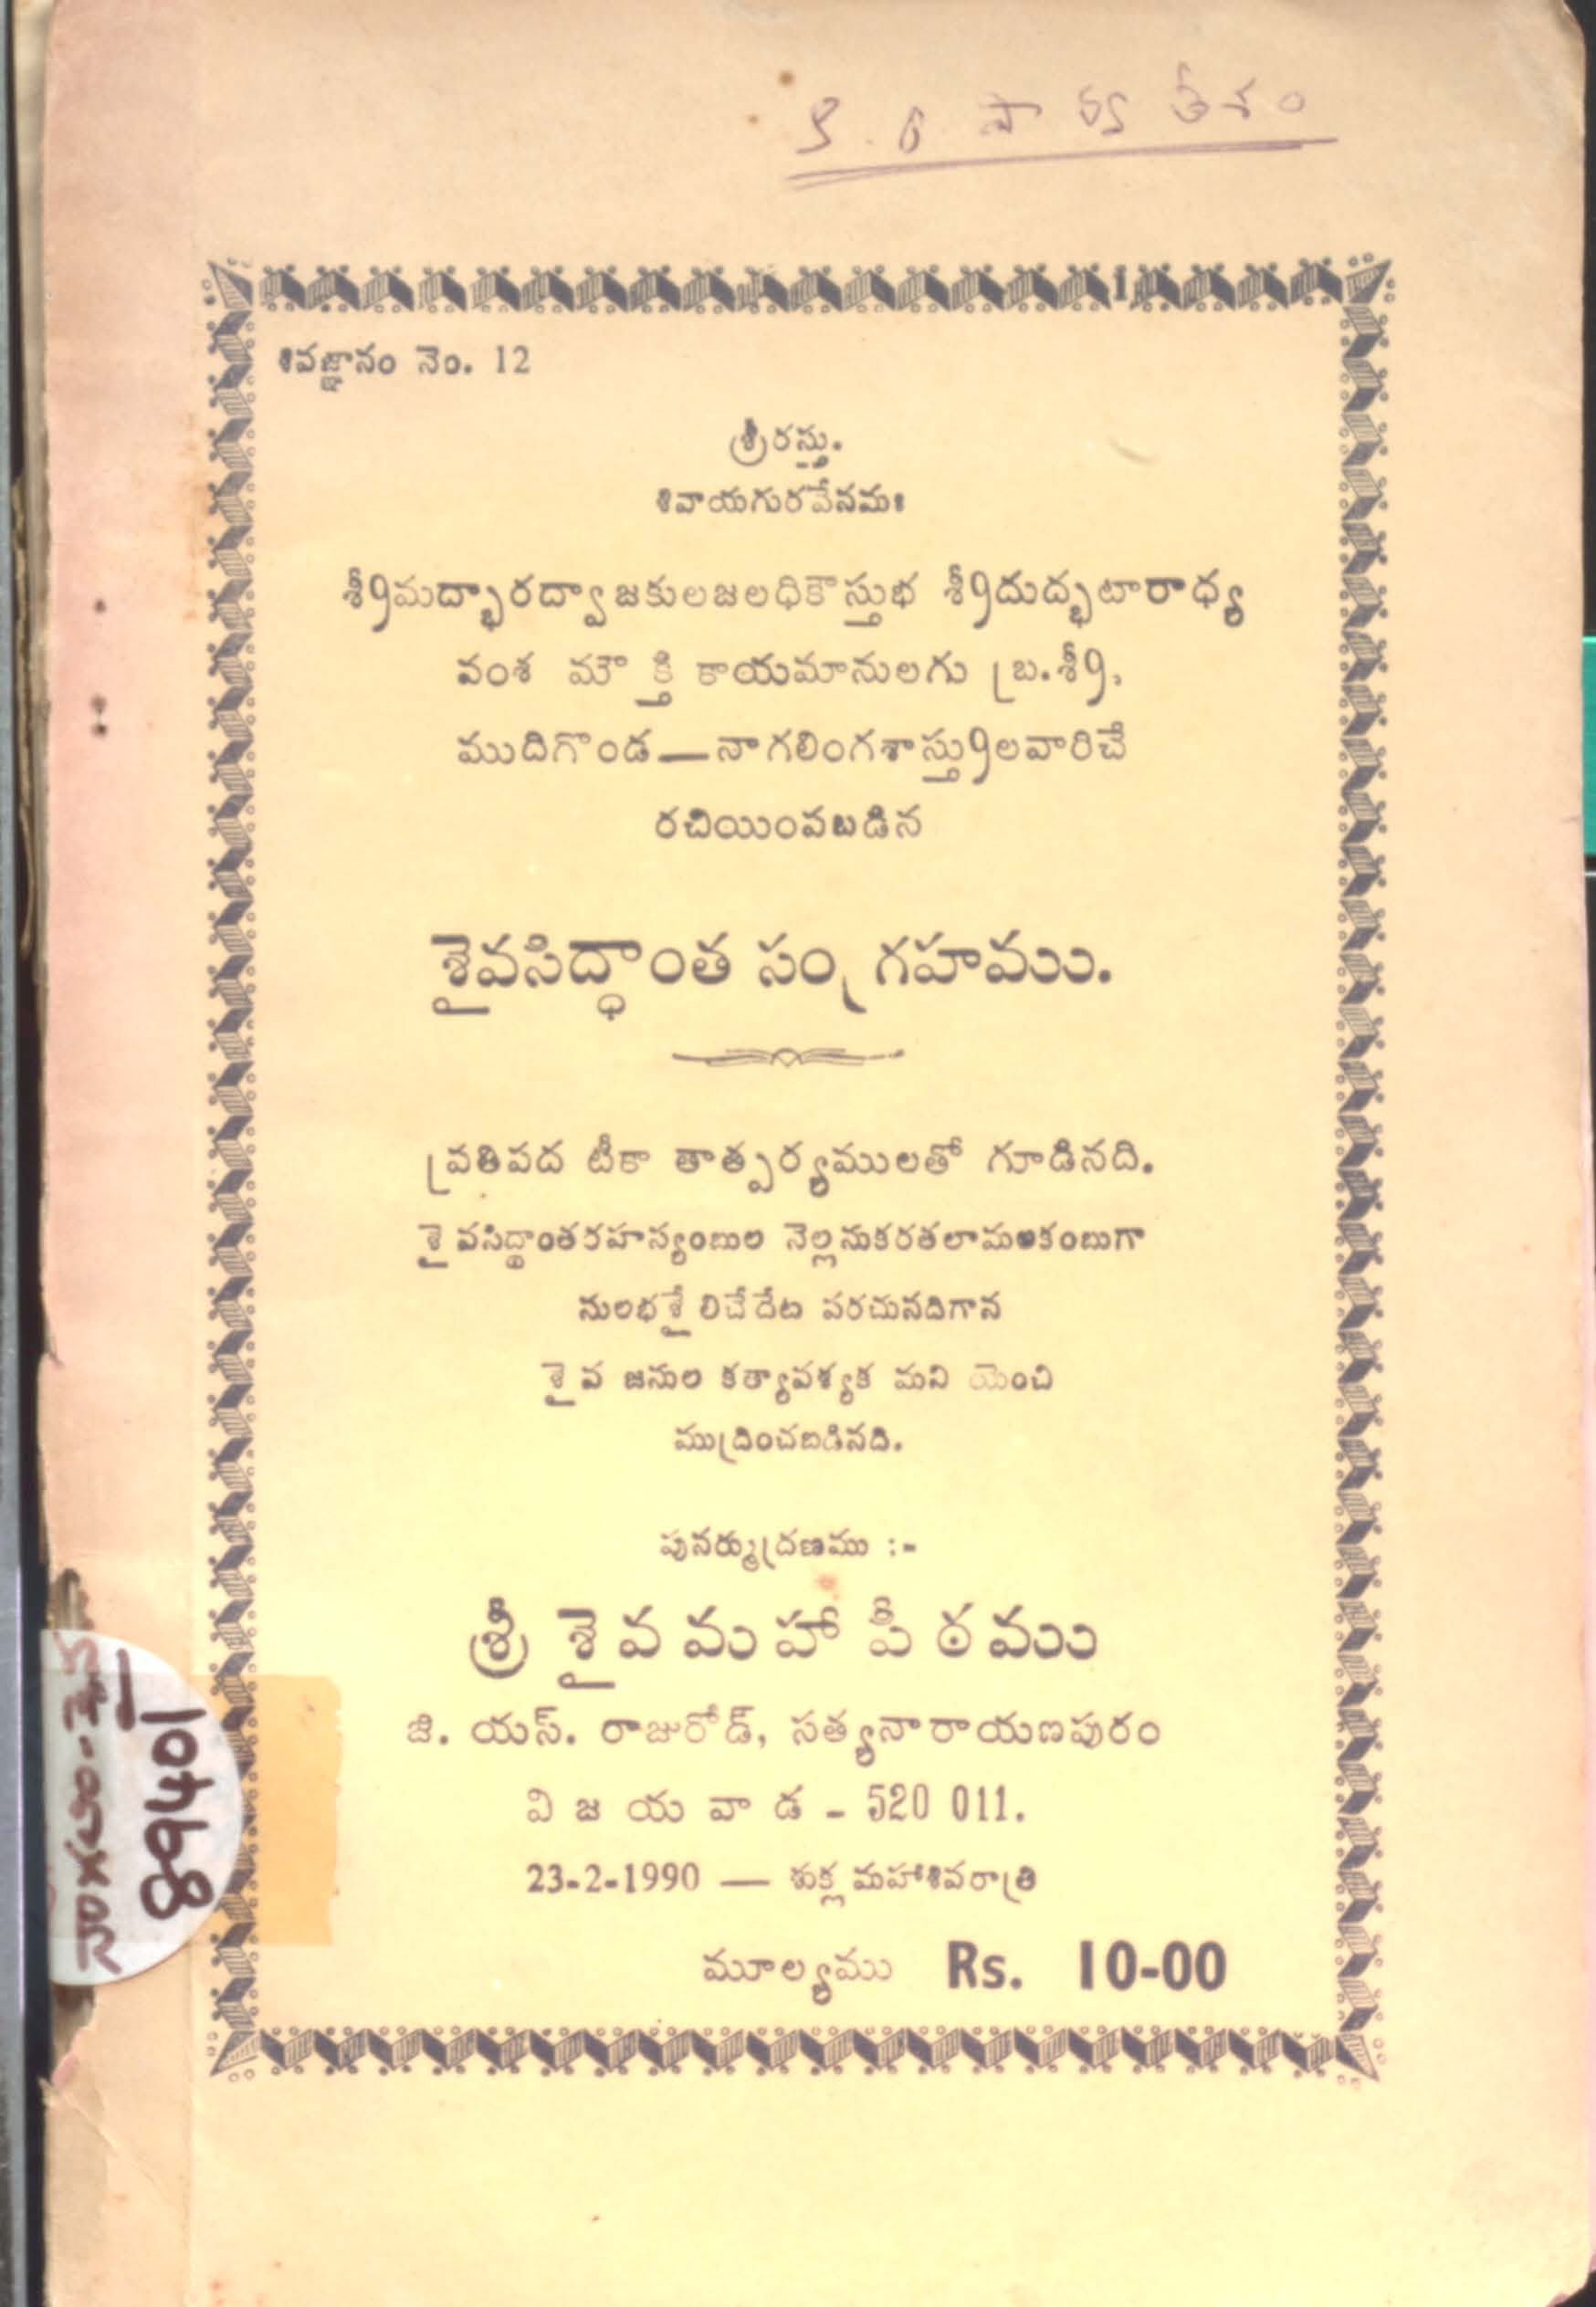 శివజ్ఞానం నెం. 12
శ్రీరస్తు.
శివాయగురవేనమః
శ్రీమద్భారద్వాజకులజలధికౌస్తుభ శ్రీదుద్భటారాధ్య
వంశ మౌక్తికాయమానులగు బ్ర.శ్రీ.
ముదిగొండ—నాగలింగశాస్త్రులవారిచే
రచియింపబడిన
శైవసిద్ధాంత సంగ్రహము.
ప్రతిపద టీకా తాత్పర్యములతో గూడినది.
శైవసిద్ధాంతరహస్యంబుల నెల్లనుకరతలామలకంబుగా
సులభశైలిచేదేట పరచునదిగాన
శైవ జనుల కత్యావశ్యక మని యెంచి
ముద్రించబడినది.
పునర్ముద్రణము :-
శ్రీ శైవమహాపీఠము
జి. యస్. రాజురోడ్, సత్యనారాయణపురం
విజయవాడ - 520 011.
23-2-1990 — శుక్ల మహాశివరాత్రి
మూల్యము Rs. 10-00
89401